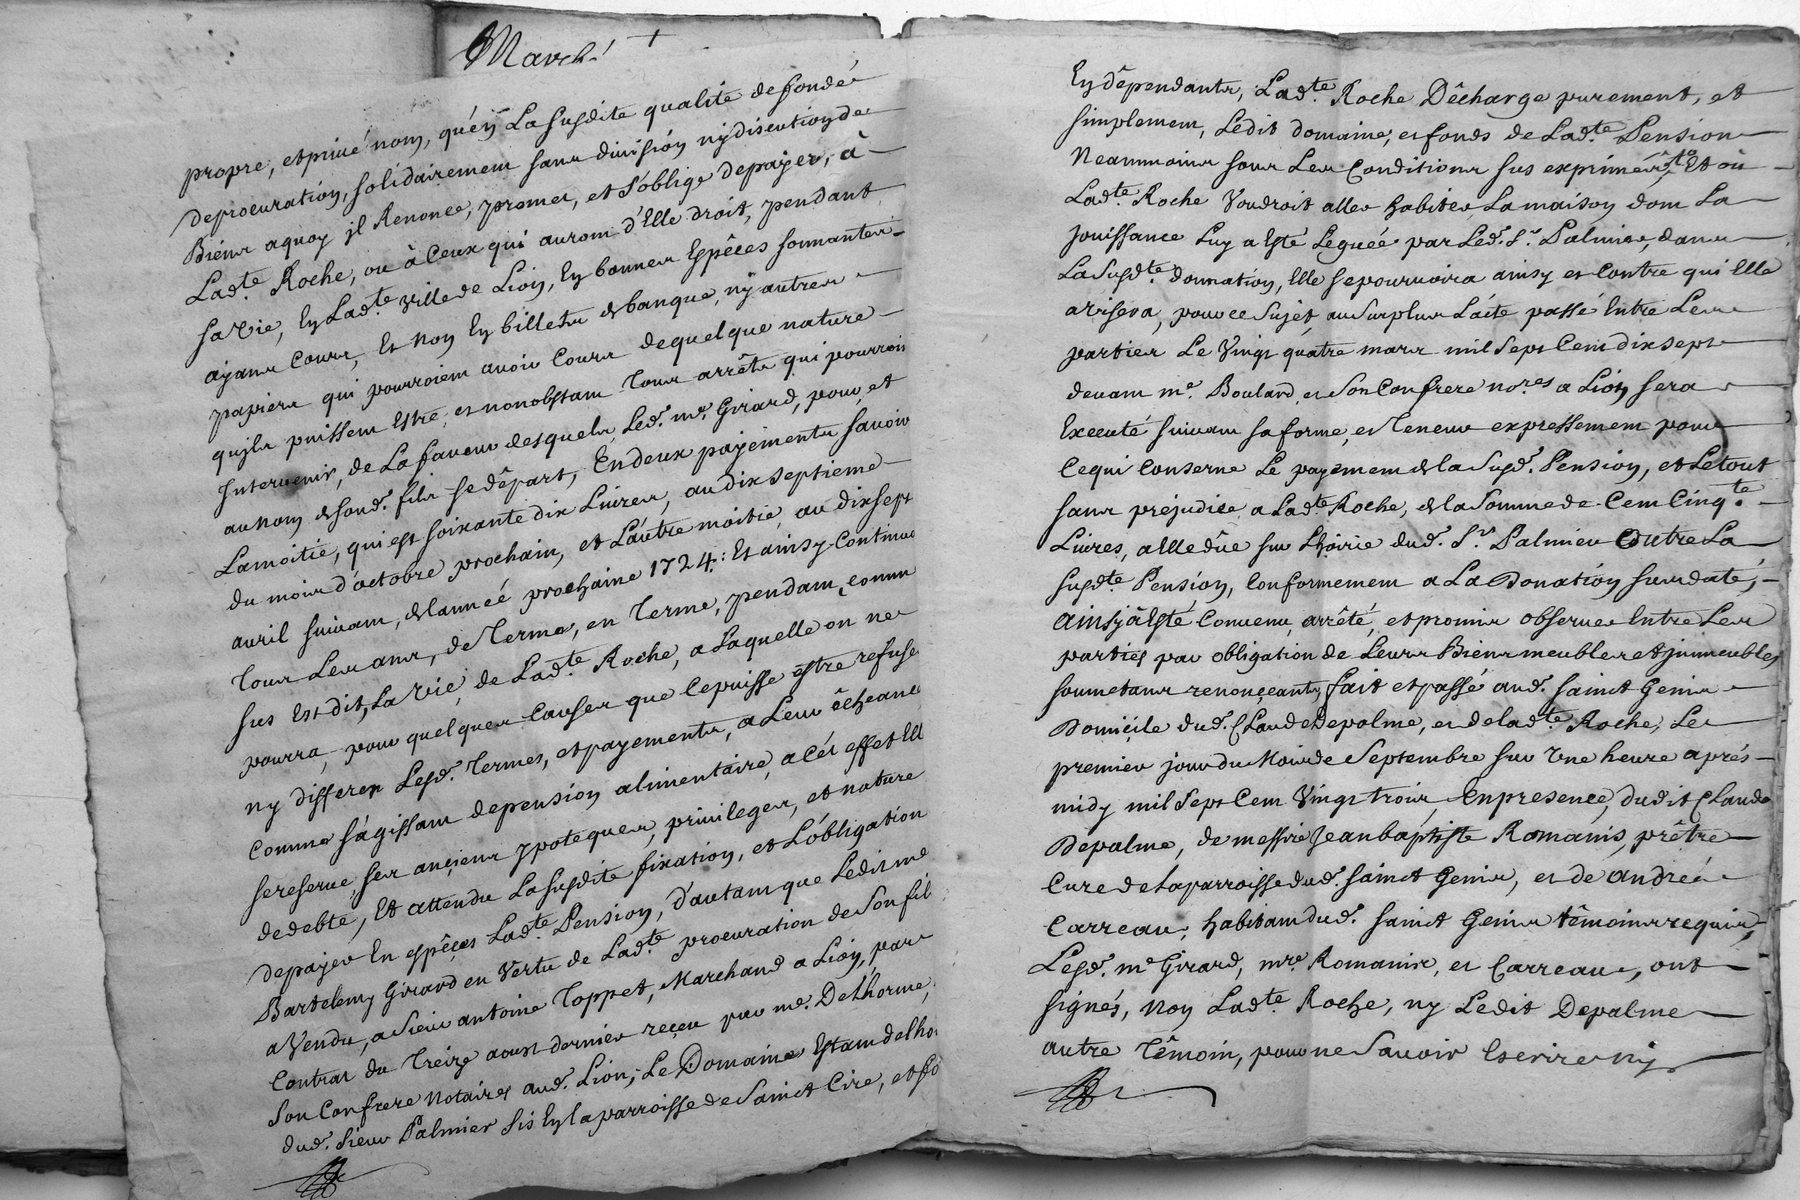 March.
propre, et privé nom, qu'en La susdite qualité de fondé
de procuration, solidairement sans division ny discution de
Biens aquoy jl Renonce, promet, et s'oblige de payer, à
Ladte. Roche, ou à Ceux qui auront d'Elle droit, pendant
sa Vie, En Ladte. Ville de Lion, En bonnes Espêces sonnantes
ayans Cours, Et Non En billets de banque, ny autres
papiers qui pourroient avoir Cours de quel que nature
qu'jls puissent Estre, et nonobstant tous arrêts qui pourroit
Intervenir, de La faveur desquels, Led. me. Girard, pour, et
au nom de sond. fils se dêpart, En deux payements savoir
La moitié, qui est soixante dix Livres, au dix septieme
du mois d'octobre prochain, et L'autre moitié, au dix sept
avril suivant, de l'année prochaine 1724: Et ainsy Continue
Tous Les ans, de Terme, en Terme, pendant, comm
sus Est dit, La Vie de Ladte. Roche, a Laquelle on ne
pourra, pour quelques Causes que Ce puisse estre refuse
ny differer Lesd. Termes, et payements, a Leur êcheance
Comme s'agissant de pension alimentaire, a cét effet Ell
se reserve, ses anciens ypoteques, privileges, et nature
de debte, Et attendu La susdite fixation, et L'obligation
de payer En espêces Ladte. Pension, d'autant que Ledit me
Bartelemy Girard en Vertu de Ladte. procuration de son fil
a Vendu, a sieur antoine Toppet, Marchand a Lion, par
Contrat du Treize aoust dernier reçeu par me. Delhorme,
son Confrere Notaires aud. Lion; Le Domaine Estant de l'ho
dud. sieur Palmier sis En la parroisse de Sainct Cire, et fo
En dêpendants, Ladte. Roche Dêcharge purement, et
simplement, Ledit domaine, et fonds de Ladte. Pension
Neammoins sous Les Conditions sus exprimées, Et où
Ladte. Roche Voudroit aller habiter La maison dont La
jouissance Luy a Esté Leguée par Led. Sr. Palmier, dans
La Susdte. donnation, Elle se pourvoira ainsy et Contre qui Elle
avisera, pour ce Sujet au Surplus L'acte passé Entre Les
parties Le Vingt quatre mars mil Sept Cent dix sept
devant me. Boulard, et son Confrere nores. a Lion sera
Executé suivant sa forme, et Teneur expressement pour
Ce qui Conserne Le payement de la Susd. Pension, et Le tout
sans préjudice a Ladte. Roche, de la Somme de Cent Cinqte.
Livres, a Elle dûe sur L'hoirie dud. Sr. Palmier Outre La
susdte. Pension, Conformement a La Donation susdaté;
Ainsy a Esté Convenu, arrêté, et promis observer Entre Les
parties par obligation de Leurs Biens meubles et jmmeubles
soumetans renonçeants, fait et passé aud. Sainct Genis
Domicile dud. Claude Depalme, et de ladte. Roche, Le
premier jour du Mois de Septembre sur Une heure aprés
midy mil Sept Cent Vingt trois, En presence, dudit Claude
Depalme, de messire Jean baptiste Romanis, prêtre
Cure de La parroisse dud. Sainct Genis, et de andré
Carreau, habitant dud. Sainct Genis têmoins requis,
Lesd. me Girard, mre. Romanis, et Carreau, ont
signés, Non Ladte. Roche, ny Ledit Depalme
autre Têmoin, pour ne Savoir Escrire ny